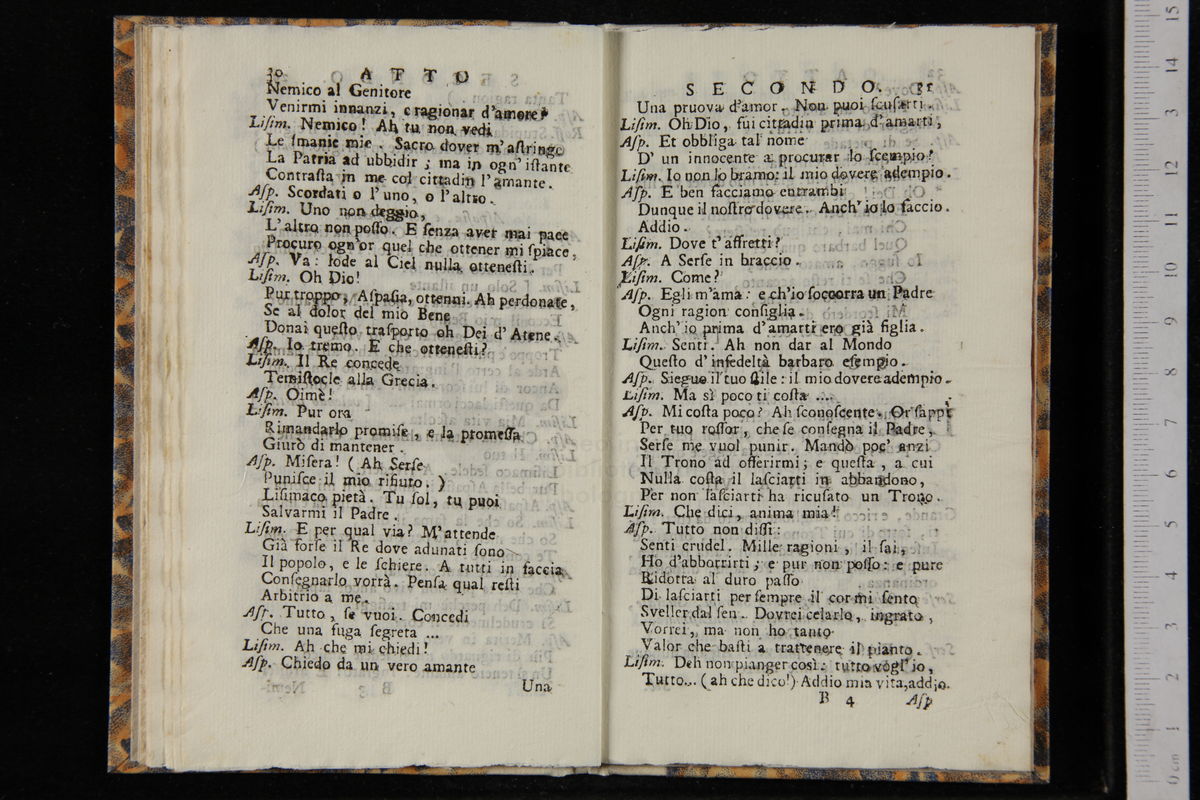 30 ATTO
Nemico al Genitore
Venirmi innanzi, e ragionar d'amore?
Liſim. Nemico! Ah tu non vedi
Le ſmanie mie. Sacro dover m'aſtringe
La Patria ad ubbidir; ma in ogn' iſtante
Contraſta in me col cittadin l'amante.
Aſp. Scordati o l'uno, o l'altro.
Liſim. Uno non deggio,
L'altro non poſſo. E ſenza aver mai pace
Procuro ogn'or quel che ottener mi ſpiace,
Aſp. Va: lode al Ciel nulla otteneſti.
Liſim. Oh Dio!
Pur troppo, Aſpaſia, ottenni. Ah perdonate,
Se al dolor del mio Bene
Donai queſto traſporto oh Dei d'Atene.
Aſp. Io tremo. E che otteneſti?
Liſim. Il Re concede
Temiſtocle alla Grecia.
Aſp. Oimè!
Liſim. Pur ora
Rimandarlo promiſe, e la promeſſa
Giurò di mantener.
Aſp. Miſera! (Ah Serſe
Puniſce il mio rifiuto.)
Liſimaco pietà. Tu ſol, tu puoi
Salvarmi il Padre.
Liſim. E per qual via? M'attende
Già forſe il Re dove adunati ſono
Il popolo, e le ſchiere. A tutti in faccia
Conſegnarlo vorrà. Penſa qual reſti
Arbitrio a me.
Aſp. Tutto, ſe vuoi. Concedi
Che una fuga ſegreta ...
Liſim. Ah che mi chiedi!
Aſp. Chiedo da un vero amante
Una
SECONDO. 31
Una pruova d'amor. Non puoi ſcuſarti.
Liſim. Oh Dio, fui cittadin prima d'amarti,
Aſp. Et obbliga tal nome
D' un innocente a procurar lo ſcempio?
Liſim. Io non lo bramo: il mio dovere adempio.
Aſp. E ben facciamo entrambi
Dunque il noſtro dovere. Anch' io lo faccio.
Addio.
Liſim. Dove t'affretti?
Aſp. A Serſe in braccio.
Liſim. Come?
Aſp. Egli m'ama: e ch'io ſoccorra un Padre
Ogni ragion conſiglia.
Anch' io prima d'amarti ero già figlia.
Liſim. Senti. Ah non dar al Mondo
Queſto d' infedeltà barbaro eſempio.
Aſp. Siegue il tuo ſtile: il mio dovere adempio.
Liſim. Ma sì poco ti coſta ....
Aſp. Mi coſta poco? Ah ſconoſcente. Or ſappi
Per tuo roſſor, che ſe conſegna il Padre,
Serſe me vuol punir. Mandò poc' anzi
Il Trono ad offerirmi; e queſta, a cui
Nulla coſta il laſciarti in abbandono,
Per non laſciarti ha ricuſato un Trono.
Liſim. Che dici, anima mia!
Aſp. Tutto non diſſi:
Senti crudel. Mille ragioni, il ſai,
Ho d'abborrirti; e pur non poſſo: e pure
Ridotta al duro paſſo
Di laſciarti per ſempre il cor mi ſento
Sveller dal ſen. Dovrei celarlo, ingrato,
Vorrei, ma non ho tanto
Valor che baſti a trattenere il pianto.
Liſim. Deh non pianger così: tutto vogl' io,
Tutto... (ah che dico!) Addio mia vita, addio.
B 4 Aſp